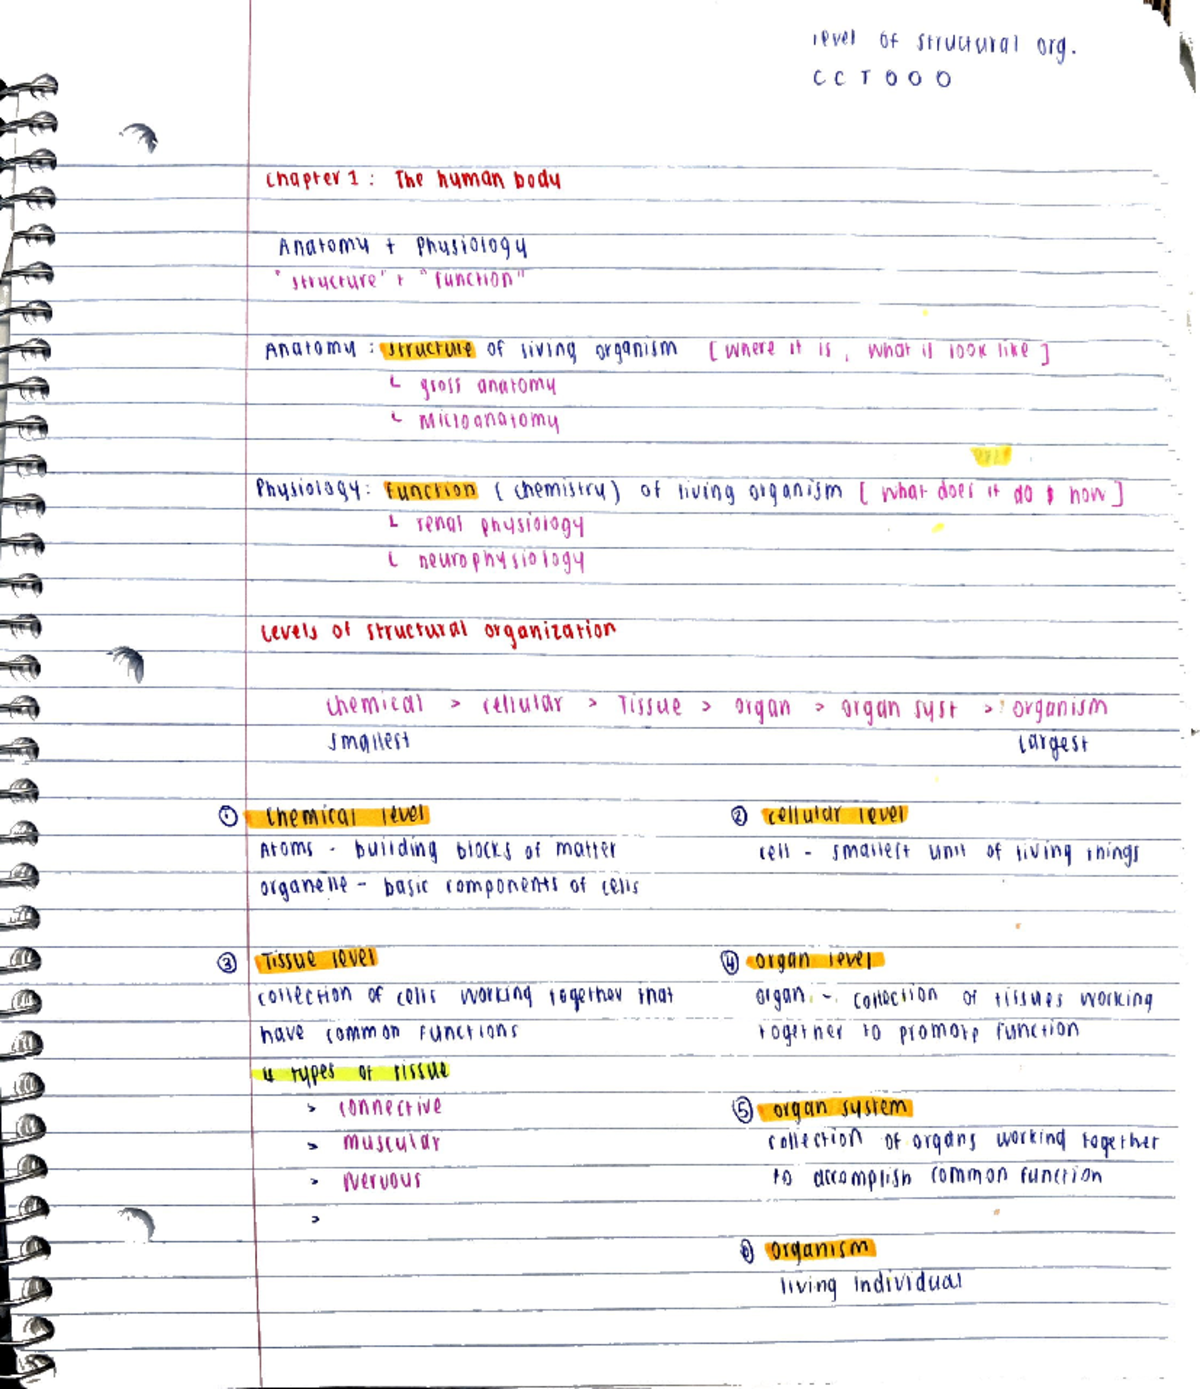 level of structural org.
C C T O O O
Chapter 1: The human body
Anatomy + Physiology
"structure" + "function"
Anatomy: structure of living organism [where it is, what it look like]
└ gross anatomy
└ Microanatomy
Physiology: function (chemistry) of living organism [what does it do & how]
└ renal physiology
└ neurophysiology
Levels of structural organization
Chemical > cellular > Tissue > organ > organ syst > organism
smallest largest
① Chemical level
Atoms - building blocks of matter
organelle - basic components of cells
② cellular level
cell - smallest unit of living things
③ Tissue level
collection of cells working together that
have common functions
4 types of tissue
> connective
> muscular
> Nervous
>
④ organ level
organ - collection of tissues working
together to promote function
⑤ organ system
collection of organs working together
to accomplish common function
⑥ organism
living individual